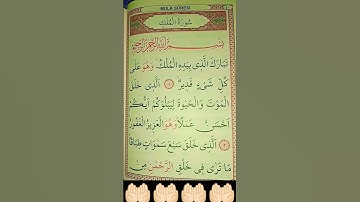 MÜLK SÛRESİ
سُورَةُ الْمُلْكِ
بِسْمِ اللّٰهِ الرَّحْمٰنِ الرَّحِيمِ
تَبَارَكَ الَّذِى بِيَدِهِ الْمُلْكُ وَهُوَ عَلٰى
كُلِّ شَىْءٍ قَدِيرٌ ﴿١﴾ اَلَّذِى خَلَقَ
الْمَوْتَ وَالْحَيٰوةَ لِيَبْلُوَكُمْ اَيُّكُمْ
اَحْسَنُ عَمَلًا وَهُوَ الْعَزِيزُ الْغَفُورُ
﴿٢﴾ اَلَّذِى خَلَقَ سَبْعَ سَمٰوَاتٍ طِبَاقًا
مَا تَرٰى فِى خَلْقِ الرَّحْمٰنِ مِنْ